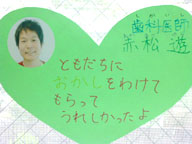 歯科医師
赤松 遊
ともだちに
おかしをわけて
もらって
うれしかったよ